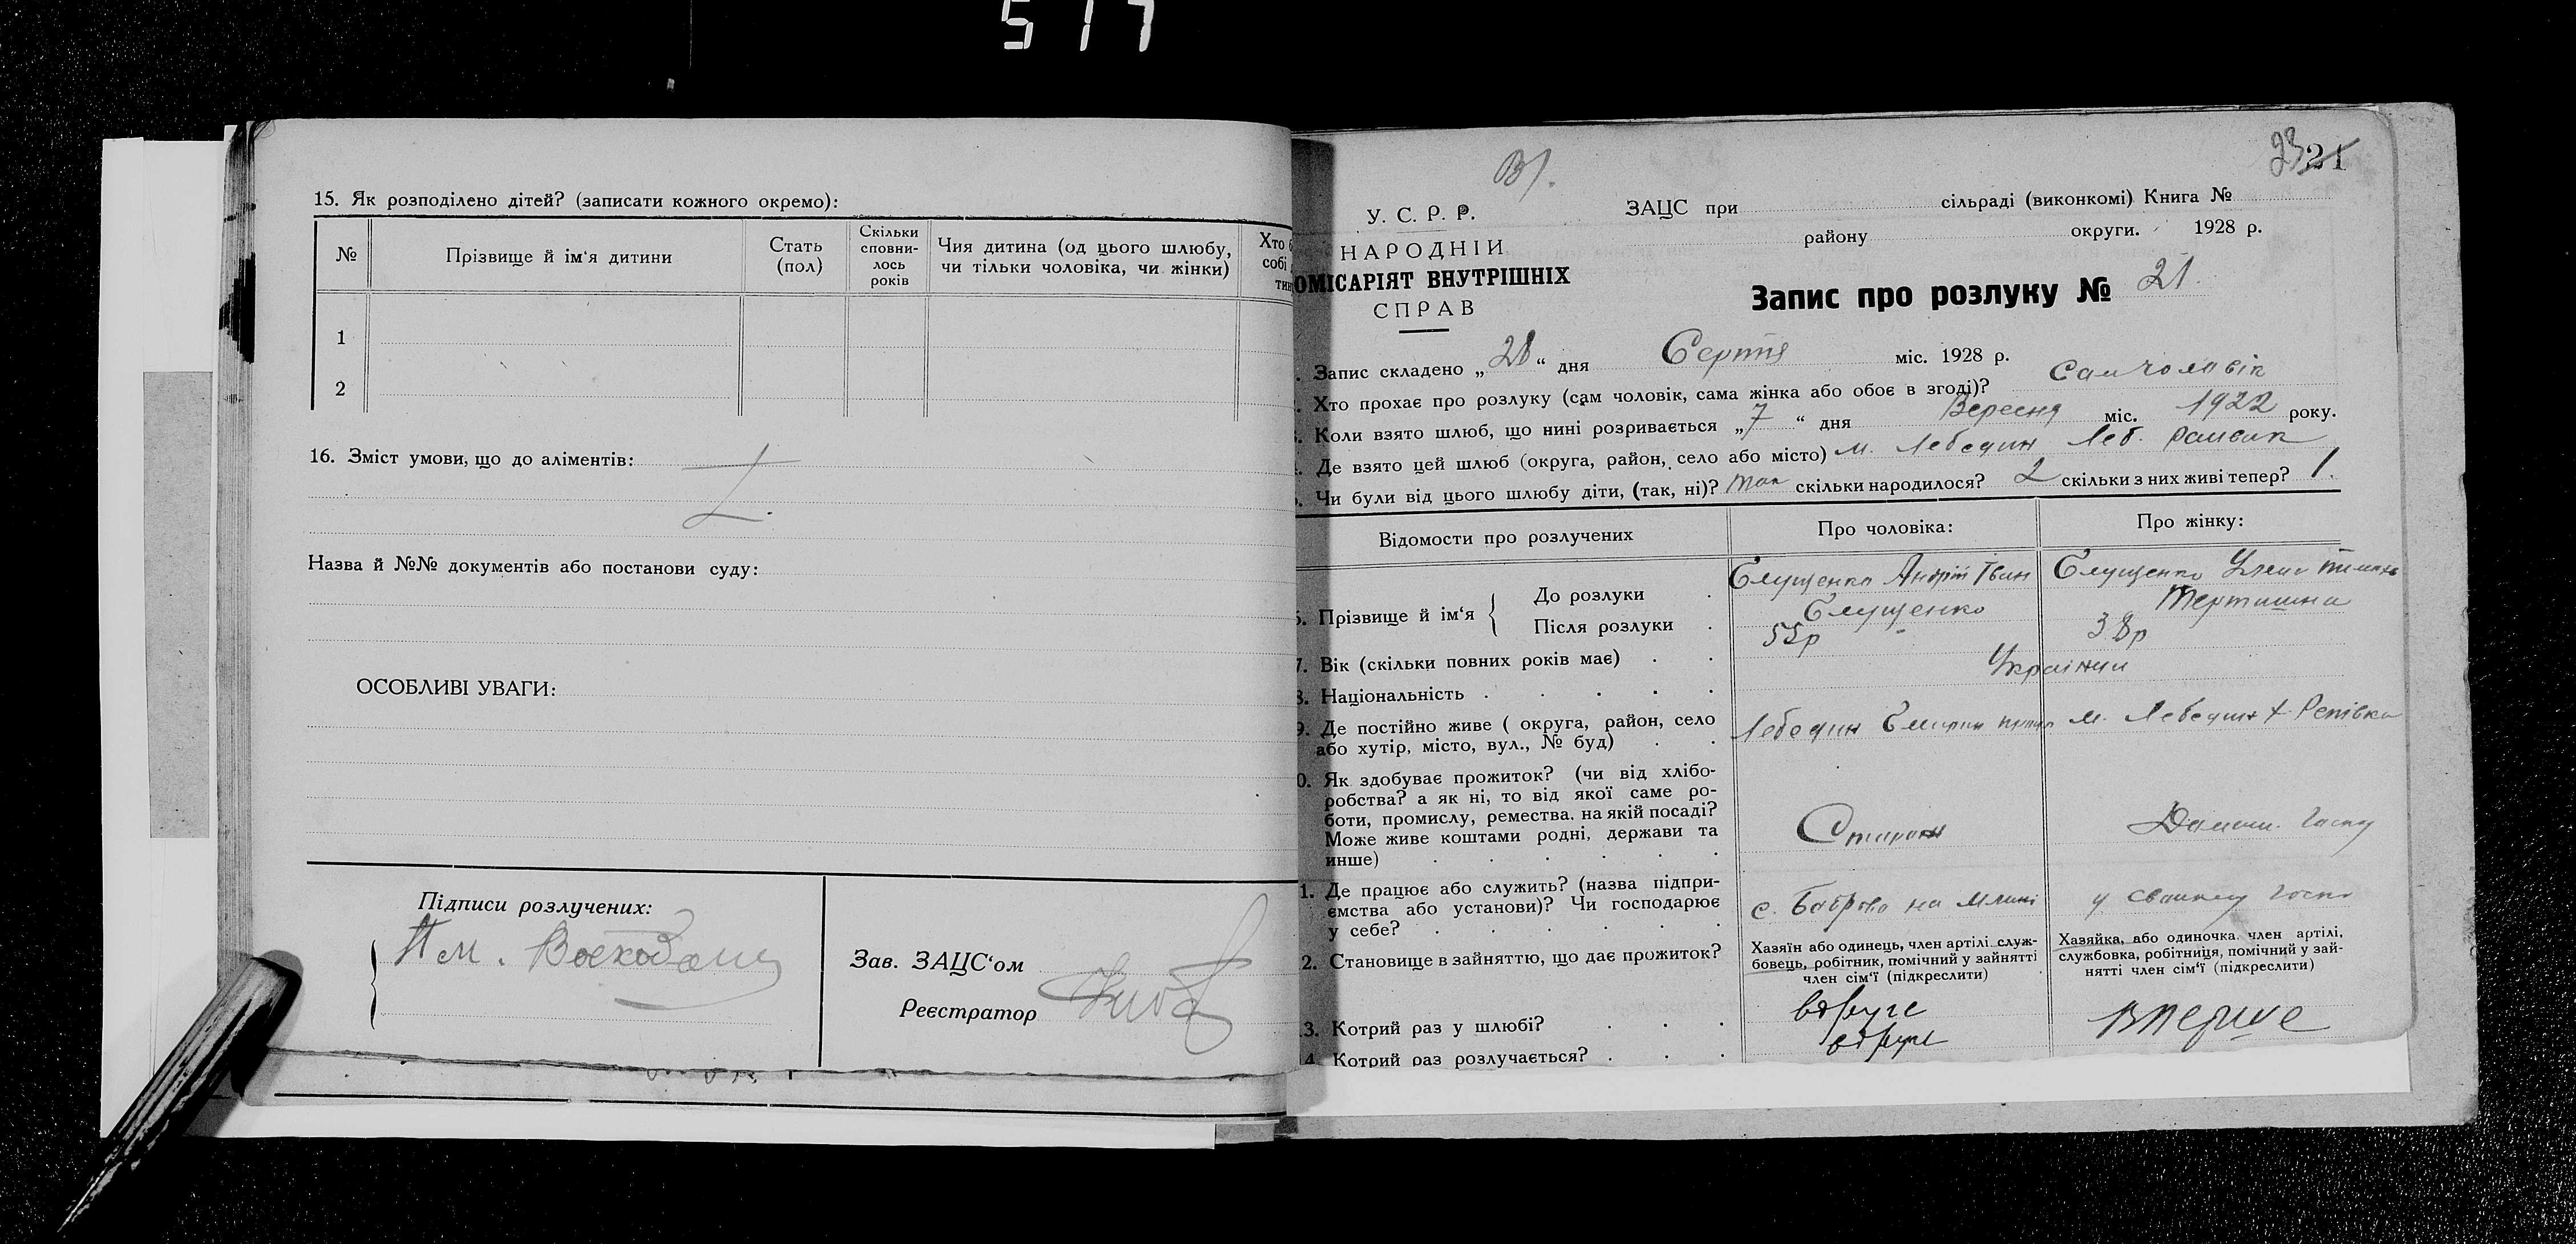 517
15. Як розподілено дітей? (записати кожного окремо):
№
Прізвище й ім‘я дитини
Стать
(пол)
Скільки
сповни-
лось
років
Чия дитина (од цього шлюбу,
чи тільки чоловіка, чи жінки)
Хто б
собі
тин
1
2
16. Зміст умови, що до аліментів:
Назва й №№ документів або постанови суду:
ОСОБЛИВІ УВАГИ:
Підписи розлучених:
Зав. ЗАЦС‘ом
Реєстратор
23 21
У. С. Р. Р.
НАРОДНІЙ
ОМІСАРІЯТ ВНУТРІШНІХ
СПРАВ
ЗАЦС при сільраді (виконкомі) Книга №
району округи. 1928 р.
Запис про розлуку № 21.
Запис складено „28“ дня Серпня міс. 1928 р.
Хто прохає про розлуку (сам чоловік, сама жінка або обоє в згоді)? Сам чоловік
Коли взято шлюб, що нині розривається „7“ дня Вересня міс. 1922 року.
Де взято цей шлюб (округа, район, село або місто) м. Лебедин Леб. райвик
Чи були від цього шлюбу діти, (так, ні)? так скільки народилося? 2 скільки з них живі тепер? 1.
Відомости про розлучених
Про чоловіка:
Про жінку:
6. Прізвище й ім‘я
До розлуки
Після розлуки
Андрій Іван
55р
38р
7. Вік (скільки повних років має)
8. Національність
Українці
9. Де постійно живе ( округа, район, село
або хутір, місто, вул., № буд)
Лебедин
м. Лебедин х. Репівка
0. Як здобуває прожиток? (чи від хлібо-
робства? а як ні, то від якої саме ро-
боти, промислу, ремества. на якій посаді?
Може живе коштами родні, держави та
инше)
Сторож
Домаш. госпу
1. Де працює або служить? (назва підпри-
ємства або установи)? Чи господарює
у себе?
с. Боброво на млині
у своиму госпо
2. Становище в зайняттю, що дає прожиток?
Хазяїн або одинець, член артілі служ-
бовець, робітник, помічний у зайнятті
член сім‘ї (підкреслити)
Хазяйка, або одиночка. член артілі,
службовка, робітниця, помічний у зай-
нятті член сім‘ї (підкреслити)
3. Котрий раз у шлюбі?
вдруге
вперше
4. Котрий раз розлучається?
вдруге